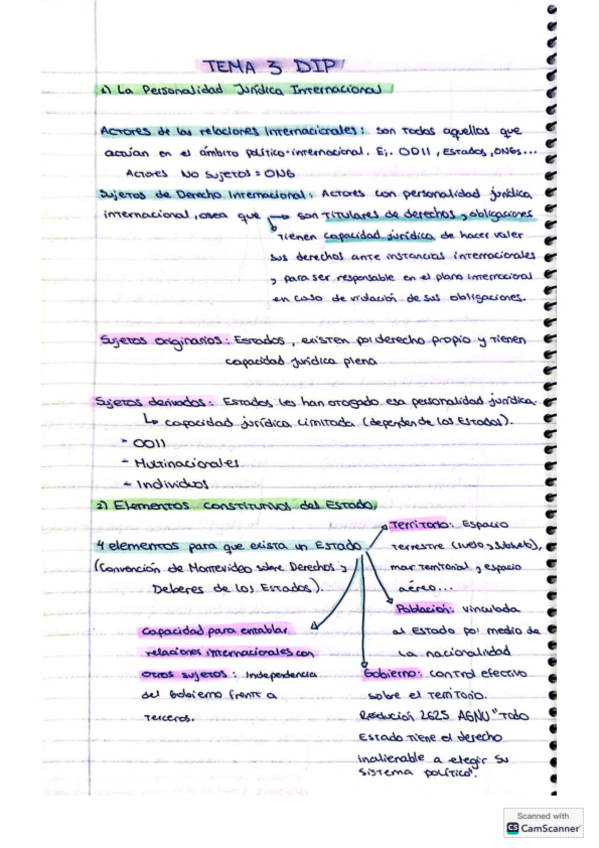 TEMA 3 DIP
1) La Personalidad Jurídica Internacional
Actores de las relaciones internacionales: son todos aquellos que
actúan en el ámbito político-internacional. Ej. OOII, Estados, ONGs...
Actores No sujetos = ONG
Sujetos de Derecho Internacional: Actores con personalidad jurídica
internacional, osea que → son titulares de derechos y obligaciones
Tienen capacidad jurídica de hacer valer
sus derechos ante instancias internacionales
y para ser responsable en el plano internacional
en caso de violación de sus obligaciones.
Sujetos originarios: Estados, existen por derecho propio y tienen
capacidad jurídica plena
Sujetos derivados: Estados les han otorgado esa personalidad jurídica.
↳ capacidad jurídica limitada (depende de los Estados).
- OOII
- Multinacionales
- Individuos
2) Elementos constitutivos del Estado
4 elementos para que exista un Estado
(Convención de Montevideo sobre Derechos y
Deberes de los Estados).
Territorio: Espacio
terrestre (suelo y subsuelo),
mar territorial y espacio
aéreo...
Población: vinculada
al Estado por medio de
la nacionalidad
Capacidad para entablar
relaciones internacionales con
otros sujetos: Independencia
del Gobierno frente a
terceros.
Gobierno: control efectivo
sobre el territorio.
Resolución 2625 AGNU "Todo
Estado tiene el derecho
inalienable a elegir su
sistema político".
Scanned with
CS CamScanner